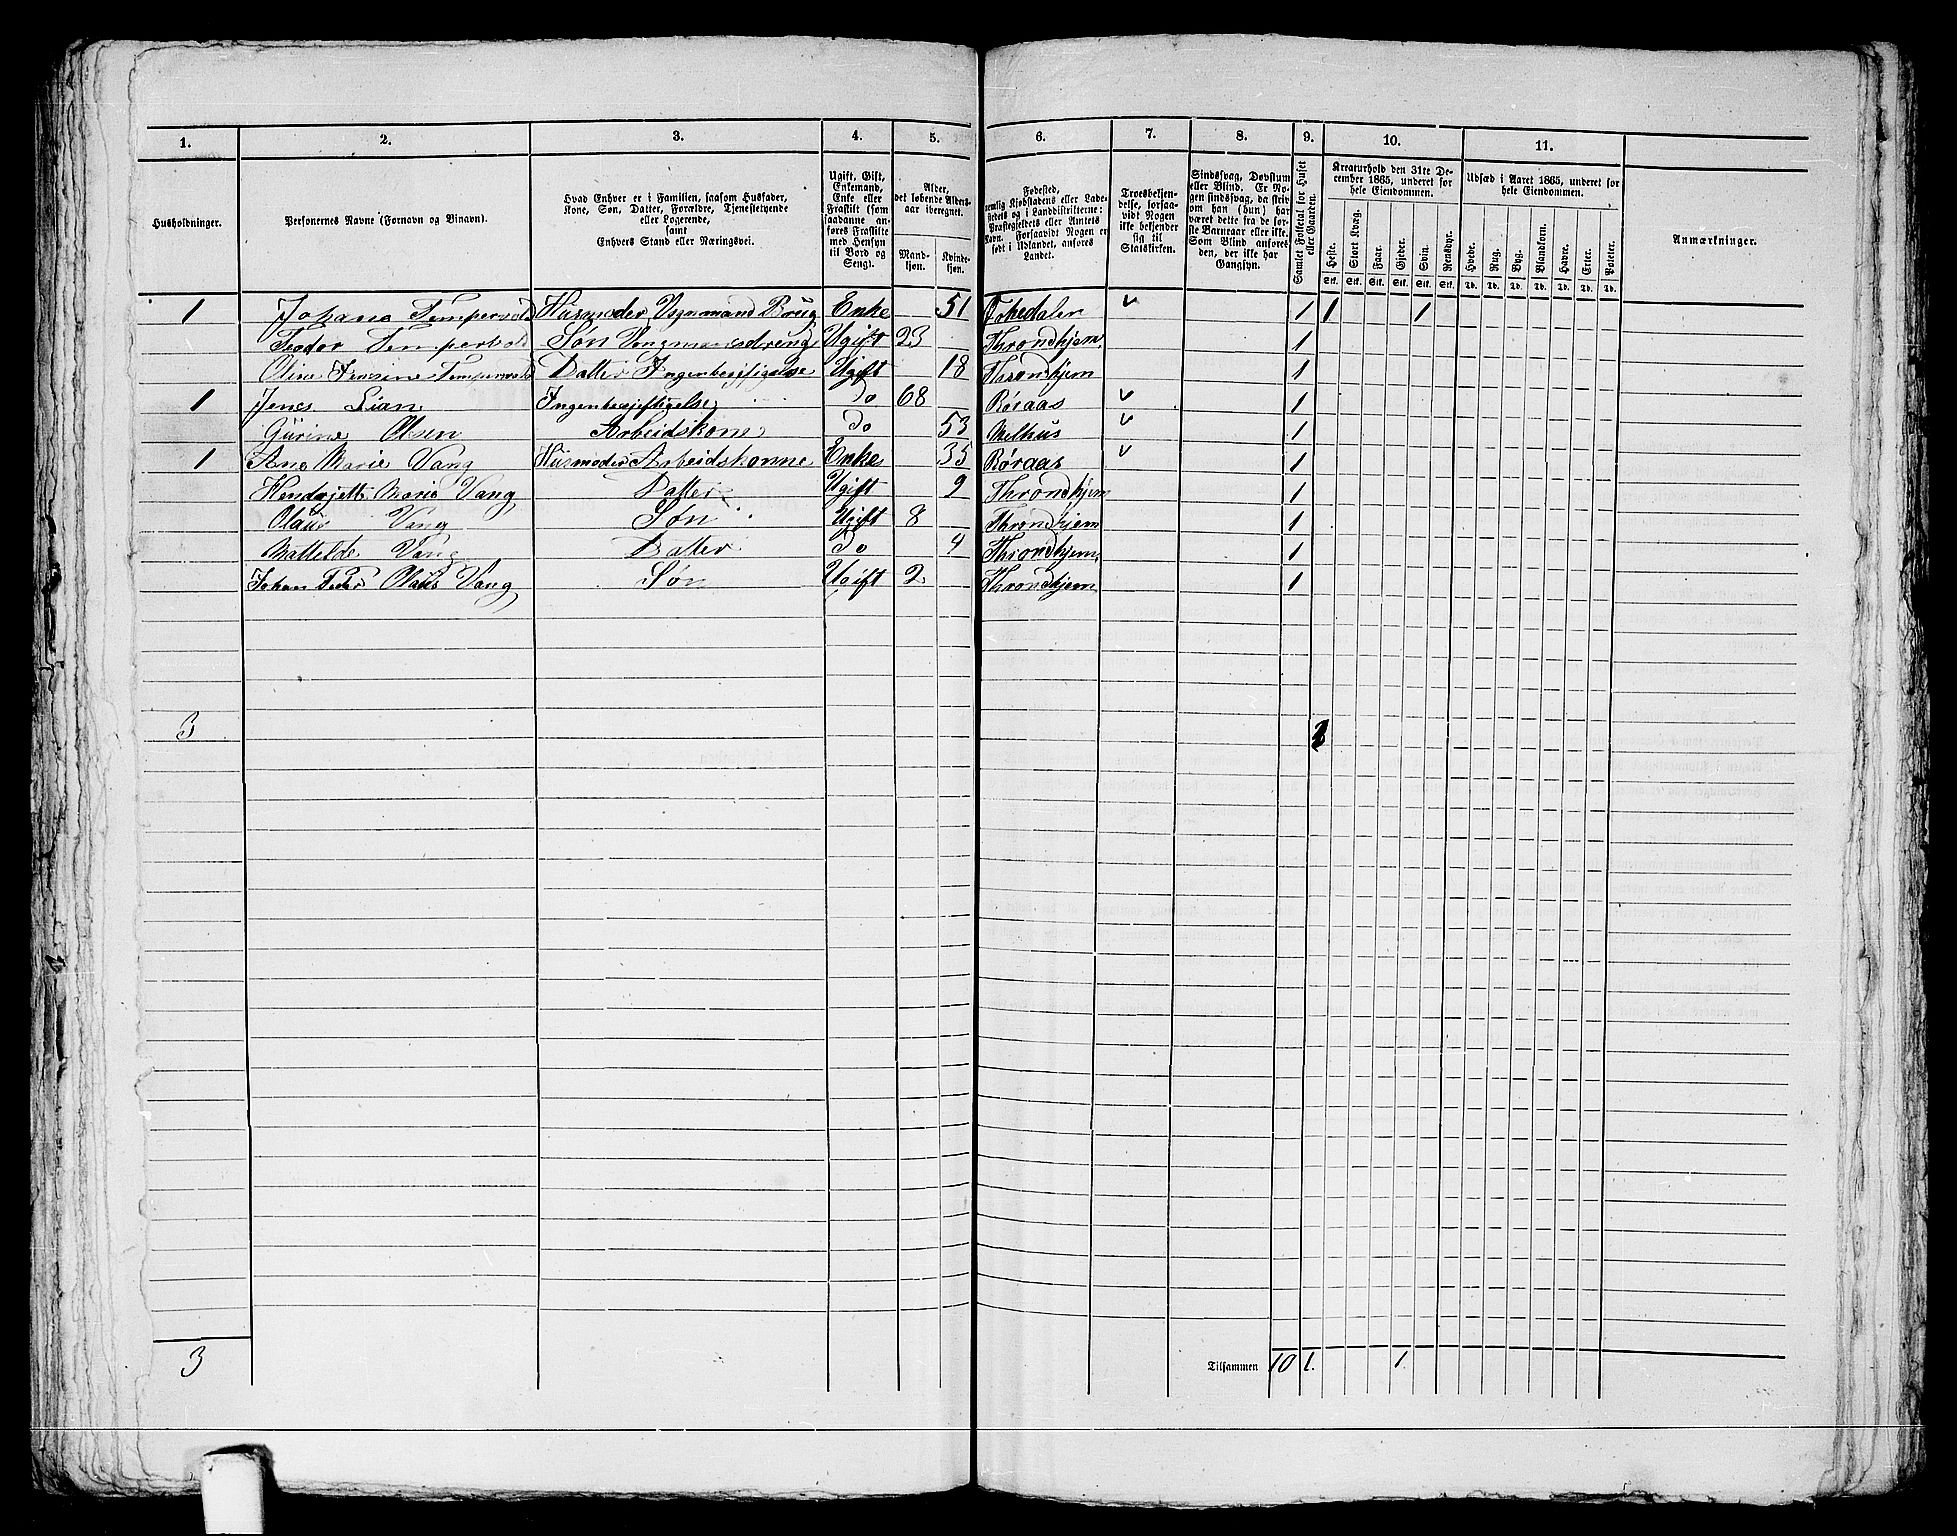 1. 2. 3. 4. 5. 6. 7. 8. 9. 10. 11.
Husholdninger.
Personernes Navne (Fornavn og Binavn).
Hvad Enhver er i Familien, saasom Husfader,
Kone, Søn, Datter, Forældre, Tjenestetyende
eller Logerende,
samt
Enhvers Stand eller Næringsvei.
Ugift, Gift,
Enkemand,
Enke eller
Fraskilt (som
saadanne an-
føres Fraskilte
med Hensyn
til Bord og
Seng).
Alder,
det løbende Alders-
aar iberegnet.
Mand-
kjøn.
Kvinde-
kjøn.
Fødested,
nemlig Kjøbstadens eller Lade-
stedets og i Landdistrikterne:
Præstegjeldets eller Amtets
Navn. Forsaavidt Nogen er
født i Udlandet, anføres
Landet.
Troesbekjen-
delse, forsaa-
vidt Nogen
ikke bekjender
sig til
Statskirken.
Sindssvag, Døvstum
eller Blind. Er No-
gen sindssvag, da skriv
om han (hun) har
været dette fra de før-
ste Barneaar eller ikke.
Som Blind anføres
den, der ikke har
Gangsyn.
Samlet Folketal for Huset
eller Gaarden.
Kreaturhold den 31te De-
cember 1865, underet for
hele Eiendommen.
Heste. Stort Kvæg. Faar. Gjeder. Svin. Rensdyr.
Stk. Stk. Stk. Stk. Stk. Stk.
Udsæd i Aaret 1865, underet for
hele Eiendommen.
Hvede. Rug. Byg. Blandkorn. Havre. Erter. Poteter.
Td. Td. Td. Td. Td. Td. Td.
Anmærkninger.
1 Johana Husmoder Vognmand Brug Enke 51 1 1 1
Teodor Søn Vongmansdreng Ugift 23 Throndhjem 1
Datter Ingenbesjftigelse Ugift 18 Throndhjem 1
1 Jens Lian Ingenbesjeftigelse do 68 Røraas 1
Gurine Olsen Arbeidskone do 53 Melhus 1
1 Ane Marie Vang Husmoder Arbeidskonne Enke 35 Røraas 1
Hendrjette Marie Vang Datter Ugift 9 Throndhjem 1
Olaus Vang Søn Ugift 8 Throndhjem 1
Mattelde Vang Datter do 4 Throndhjem 1
Johan Peder Olaus Vang Søn Ugift 2 Throndhjem 1
3
3 Tilsammen 10 1. 1.